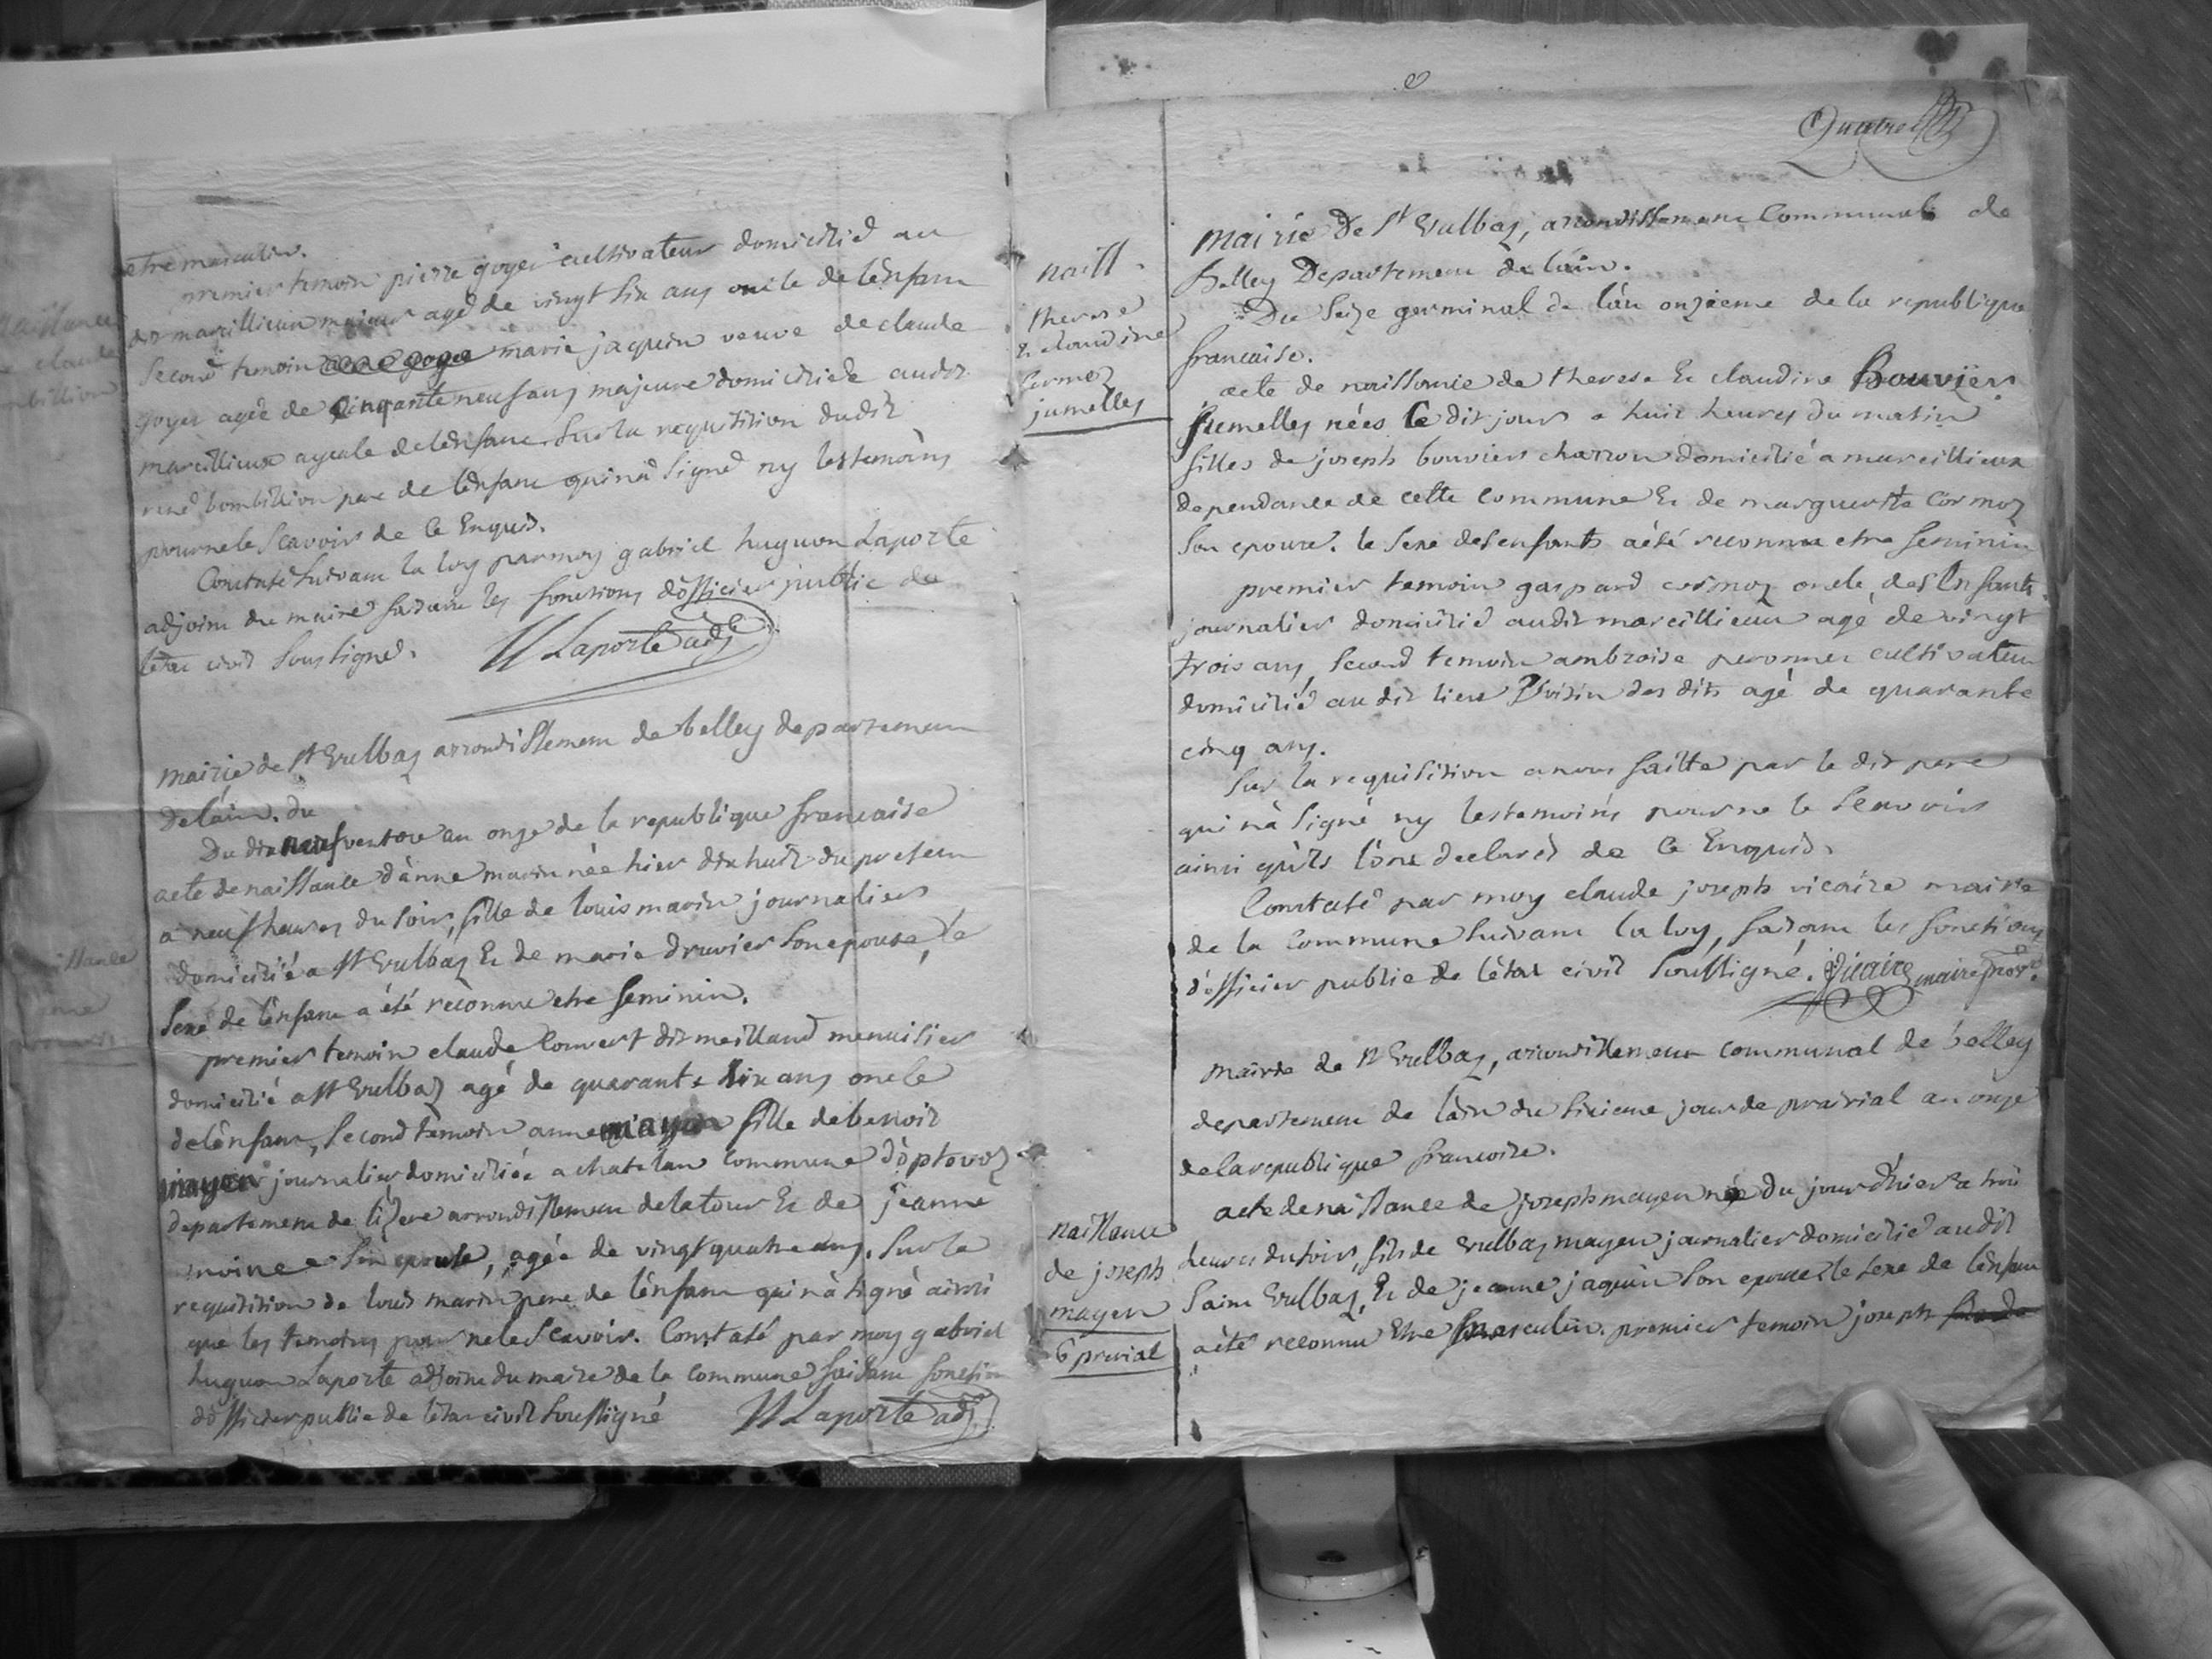 etre masculin.
premier temoin pierre goyer cultivateur domicilié au
dit marillieux majeur agé de vingt six ans oncle de lenfant
second temoin marie jaquin veuve de claude
goyer agée de cinquante neuf ans majeure domiciliée audit
marcillieux ayeule de lenfant. Sur la requisition dudit
rené bombillion pere de lenfant qui n'a signé ny les temoins
pour ne le scavoir de ce enquis.
Constaté suivant la loy par moy gabriel huguon Laporte
adjoint du maire faisant les fonctions d'officier public de
letat civil soussigné. Laporte adjt
mairie de st Vulbas arrondissement de belley departement
de lain. du
Du dix neuf ventose an onze de la republique francaise
acte de naissance d'anne marin née hier dix huit du present
a neuf heures du soir, fille de louis marin journalier
domicilié a st Vulbas et de marie druvier son epouse, le
sexe de lenfant a été reconnu etre feminin.
premier temoin claude Convert dit meilland menuisier
domicilié a st Vulbas agé de quarante six ans oncle
de lenfant, second temoin anne mayen fille de benoit
mayen journalier domiciliée a chatelan commune d'optevoz
departement de lizere arrondissement de latour et de jeanne
moine son epouse, agée de vingt quatre ans. Sur la
requisition de louis marin pere de lenfant qui n'a signé ainsi
que les temoins pour ne le scavoir. Constaté par moy gabriel
huguon Laporte adjoint du maire de la commune faisant fonction
d'officier public de letat civil soussigné Laporte adj
Quatre
naiss.
therese
& claudine
cormoz
jumelles
mairie de st Vulbas, arrondissement Communal de
belley Departement de lain.
Du seize germinal de lan onzieme de la republique
francaise.
acte de naissance de therese et claudine Bouvier
jumelles nées le dit jour a huit heures du matin
filles de joseph bouvier charron domicilié a marcillieux
dependance de cette commune et de marguerite cormoz
son epouse. le sexe des enfants a été reconnu etre feminin
premier temoin gaspard cormoz oncle des enfants
journalier domicilié audit marcillieux agé de vingt
trois ans, second temoin ambroise peronnet cultivateur
domicilié au dit lieu voisin des dits agé de quarante
cinq ans.
Sur la requisition a nous faitte par le dit pere
qui n'a signé ny les temoins pour ne le scavoir
ainsi qu'ils l'ont declaré de ce enquis.
Constaté par moy claude joseph vicaire maire
de la commune suivant la loy, faisant les fonctions
d'officier public de l'état civil soussigné. Vicaire maire
mairie de st Vulbas, arrondissement communal de belley
departement de lain du sixieme jour de prairial an onze
de la republique francoise.
naissance
de joseph
mayen
6 prerial
acte de naissance de joseph mayen né du jour d'hier a trois
heures du soir, fils de Vulbas mayen journalier domicilié audit
Saint Vulbas, et de jeanne jaquin son epouse le sexe de lenfant
a été reconnu etre masculin. premier temoin joseph